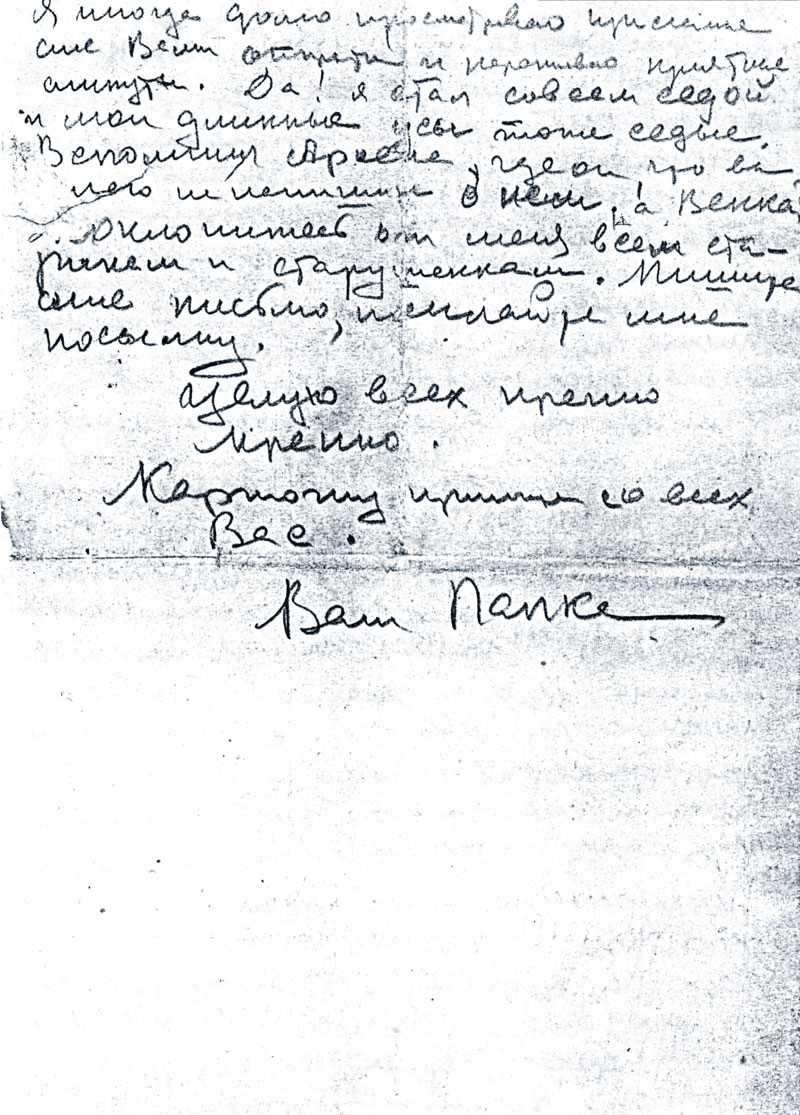 Я иногда долго просматриваю присланные
мне Вами открытки и переживаю приятные
минуты. Да! я стал совсем седой
и мои длинные усы тоже седые.
Вспомнил, где он что вы
него не пишете о нем, а Венка,
Поклонитесь от меня всем ста-
ричкам и старушенкам. Пишите
мне письмо, посылайте мне
посылку.
Целую всех крепко
крепко.
Карточку пришлите со всех
Вас.
Ваш Папка